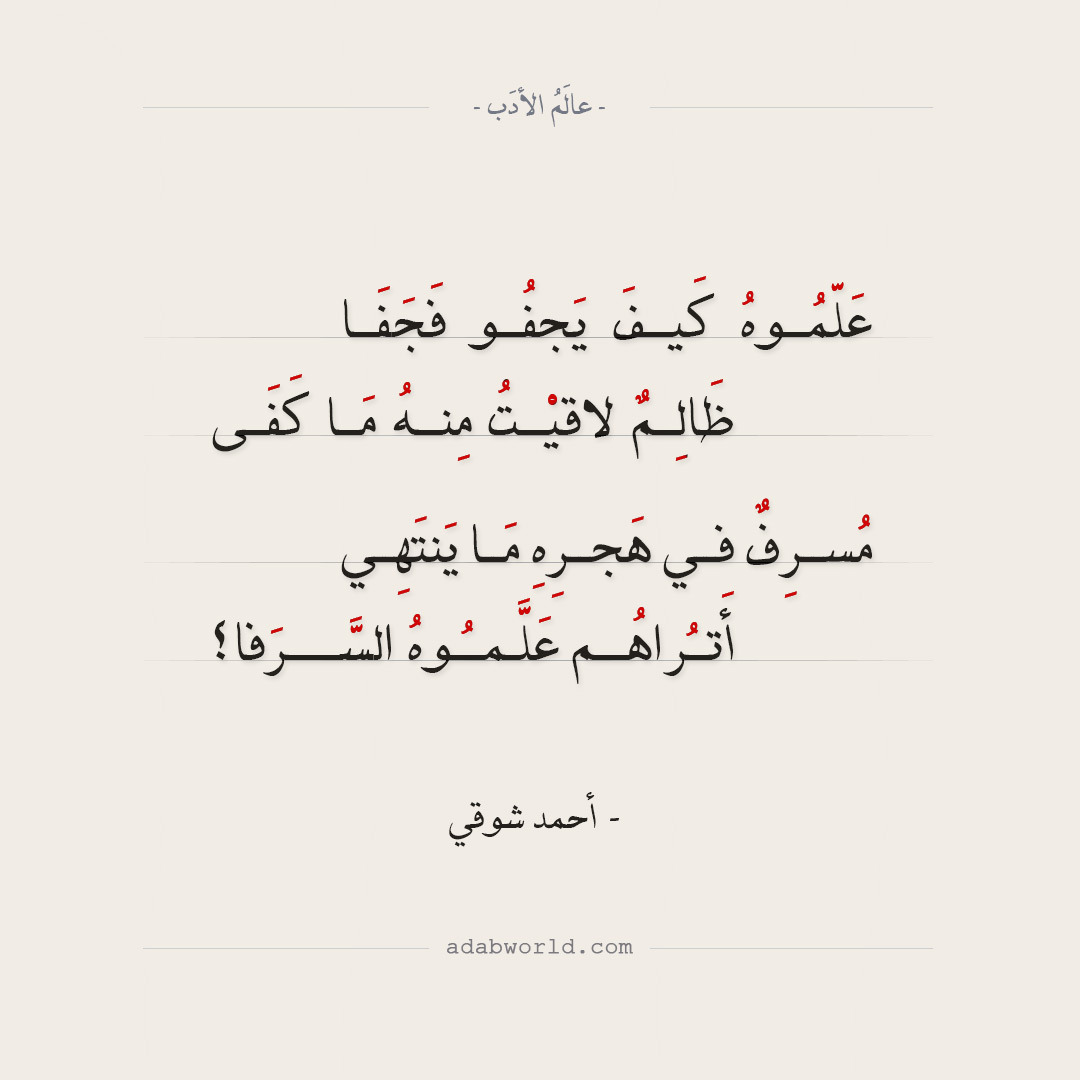 - عالَمُ الأدَب -
عَلّمُـوهُ كَيـفَ يَجفُـو فَجَفَـا
ظَالِـمٌ لاقيْـتُ مِنـهُ مَـا كَفَـى
مُسـرِفٌ فـي هَجـرِهِ مَـا يَنتَهِـي
أَتـُراهُـم عَلَّـمـُوهُ السَّـــرَفا؟
- أحمد شوقي
adabworld.com